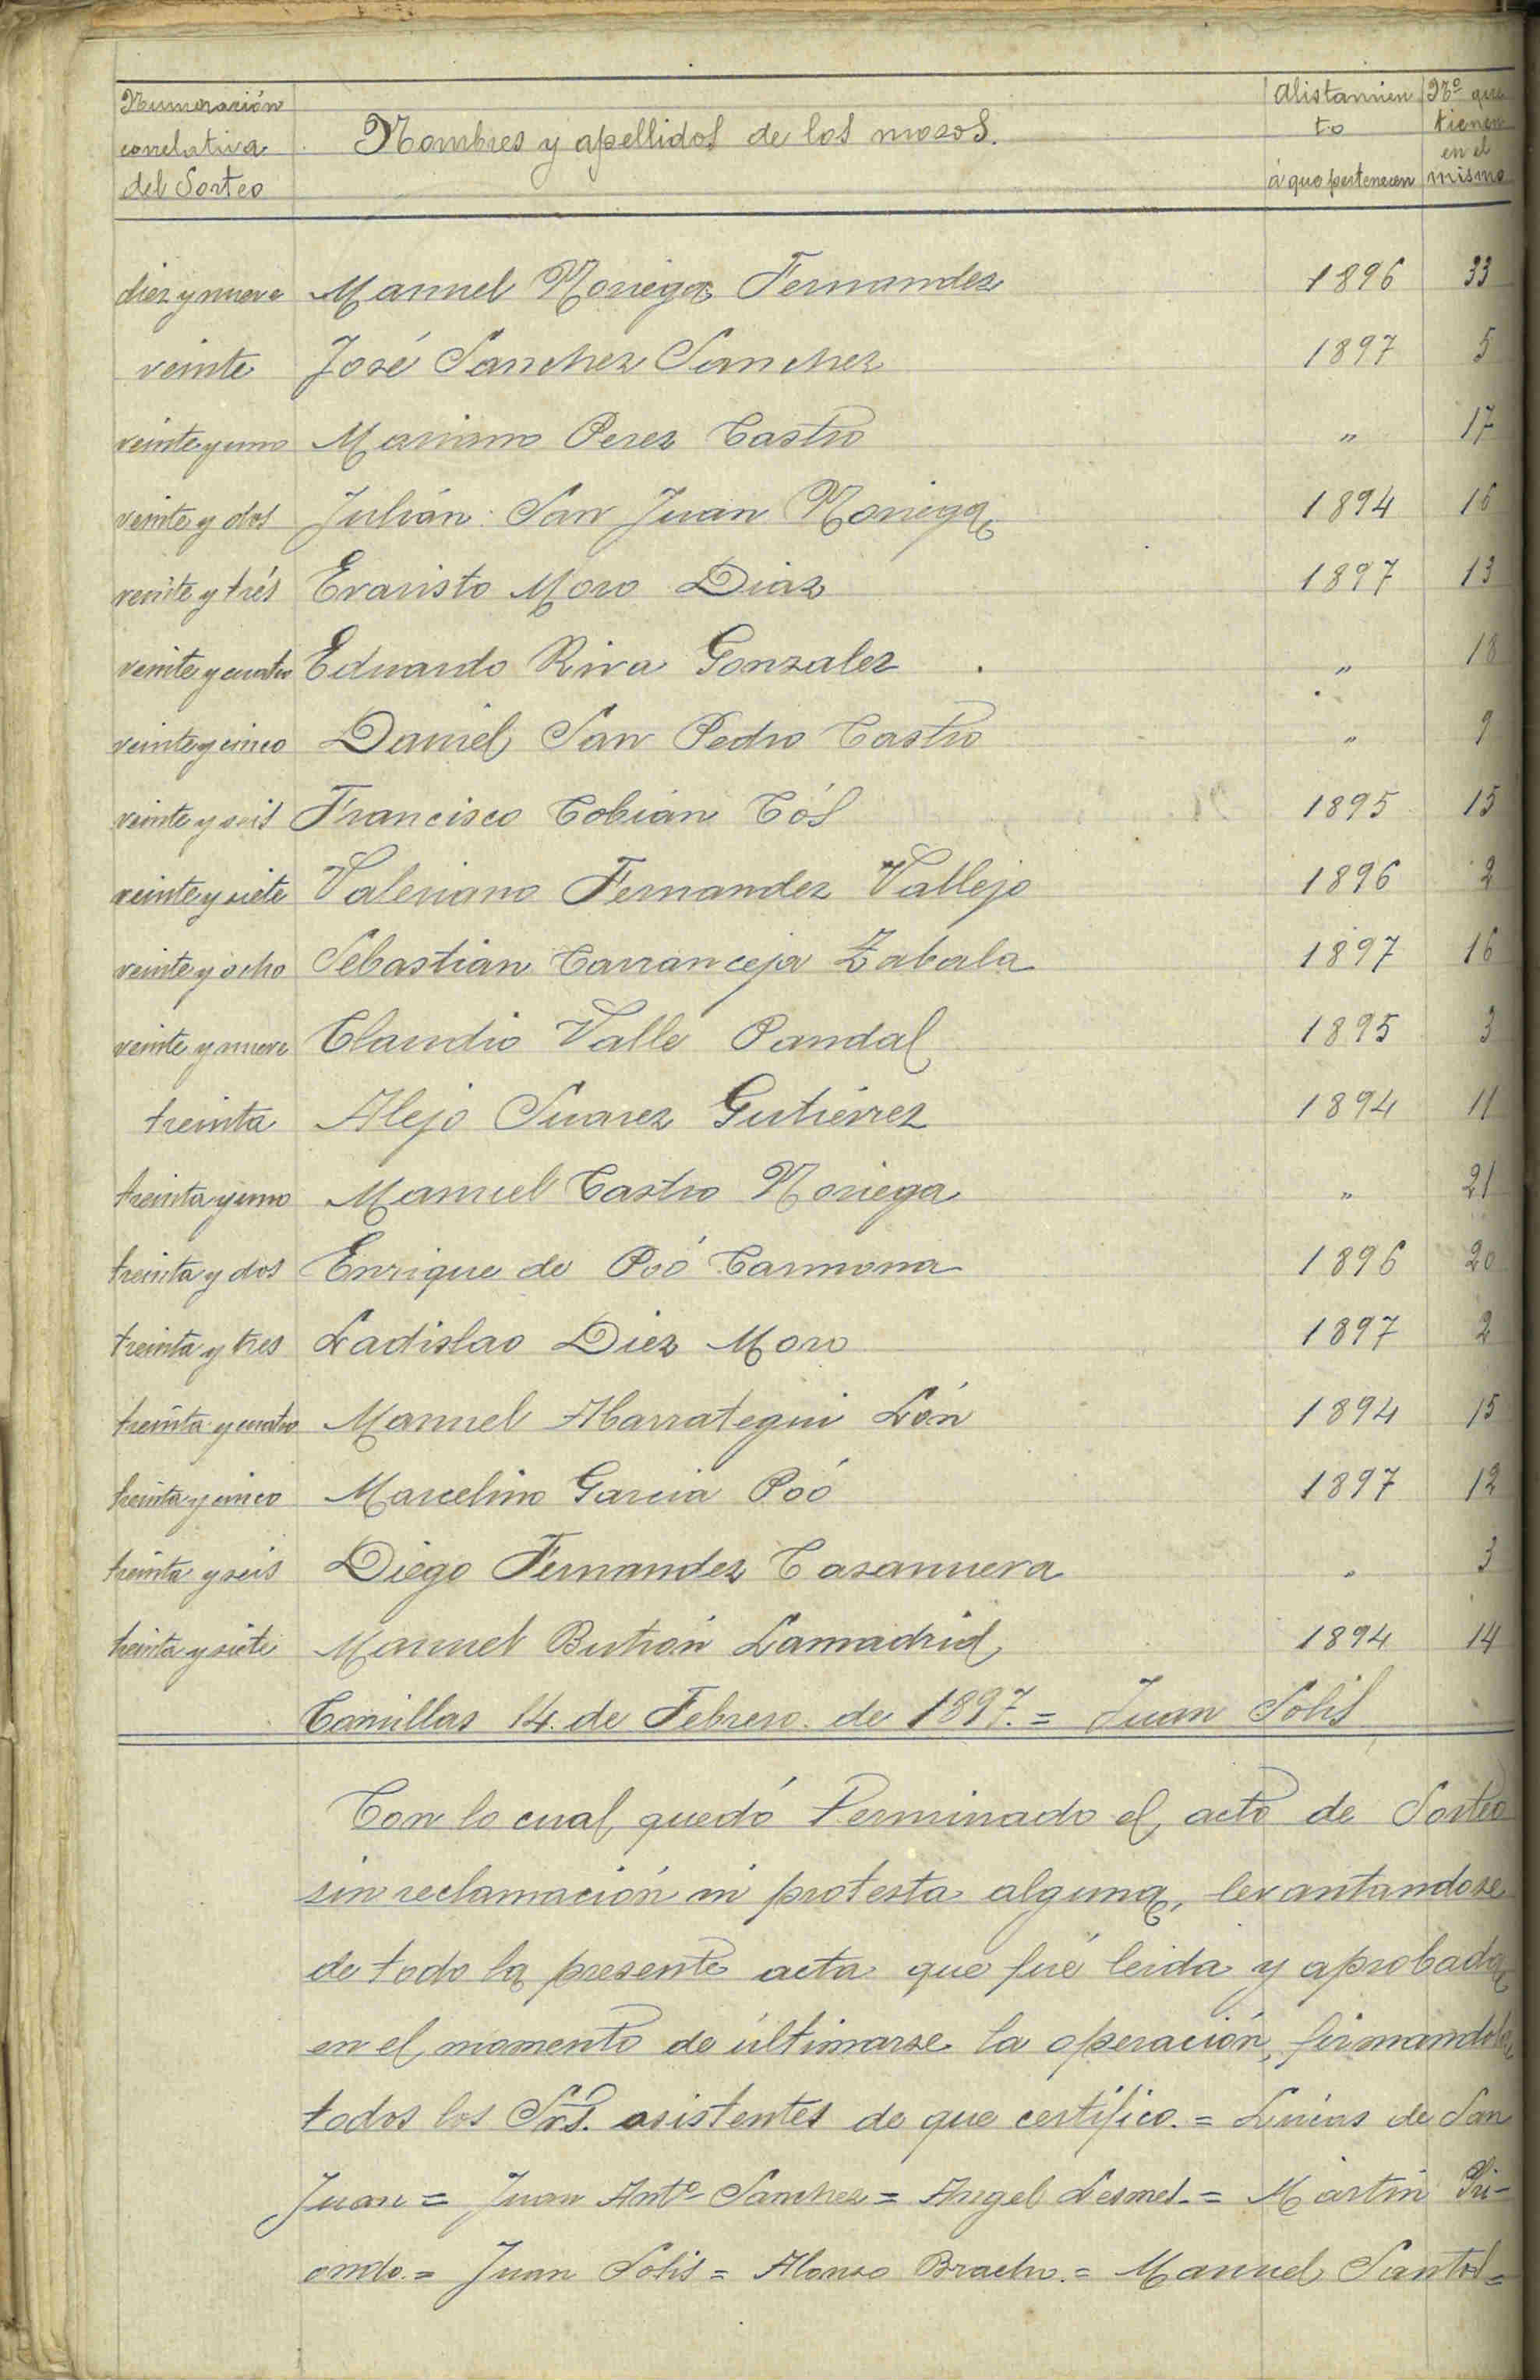 Numeración correlativa del Sorteo | Nombres y apellidos de los mozos. | Alistamiento á que pertenecen | Nº que tienen en el mismo
diez y nueve Manuel Noriega Fernandez 1896 33
veinte José Sanchez Sanchez 1897 5
veinte y uno Mariano Perez Castro " 17
veinte y dos Julián San Juan Noriega 1894 16
veinte y trés Evaristo Moro Diaz 1897 13
veinte y cuatro Eduardo Riva Gonzalez " 18
veinte y cinco Daniel San Pedro Castro " 9
veinte y seis Francisco Cobián Cós 1895 15
veinte y siete Valeriano Fernandez Vallejo 1896 2
veinte y ocho Sebastián Carranceja Zabala 1897 16
veinte y nueve Claudio Valle Pandal 1895 3
treinta Alejo Suarez Gutiérrez 1894 11
treinta y uno Manuel Castro Noriega " 21
treinta y dos Enrique de Poó Carmona 1896 20
treinta y tres Ladislao Diez Moro 1897 2
treinta y cuatro Manuel Abarrategui Lón 1894 15
treinta y cinco Marcelino Garcia Poó 1897 12
treinta y seis Diego Fernandez Casanueva " 3
treinta y siete Manuel Butrón Lamadrid 1894 14
Comillas 14. de Febrero de 1897. = Juan Solis
Con lo cual quedó terminado el acto de Sorteo
sin reclamación ni protesta alguna, levantandose
de todo la presente acta que fué leida y aprobada
en el momento de últimarse la operación, firmandola
todos los Srs. asistentes de que certifico. = Lúcas de San
Juan = Juan Antº Sanchez = Angel Lesmes. = Martin Iri-
ondo. = Juan Solis = Alonso Bracho. = Manuel Santos =